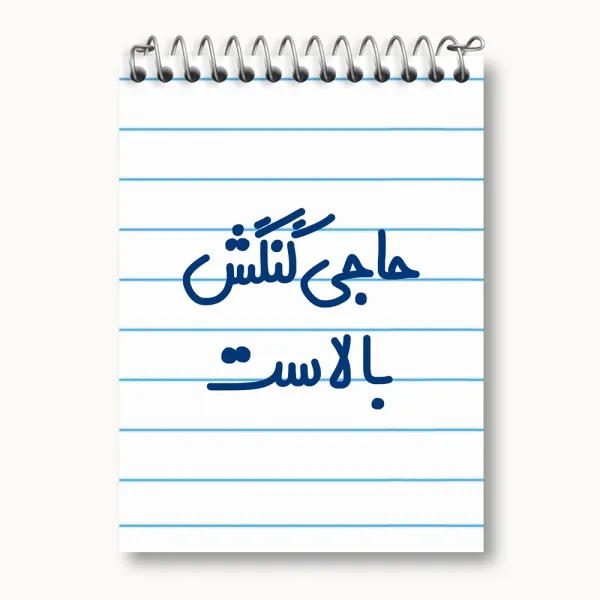 حاجی گنگش
بالاست